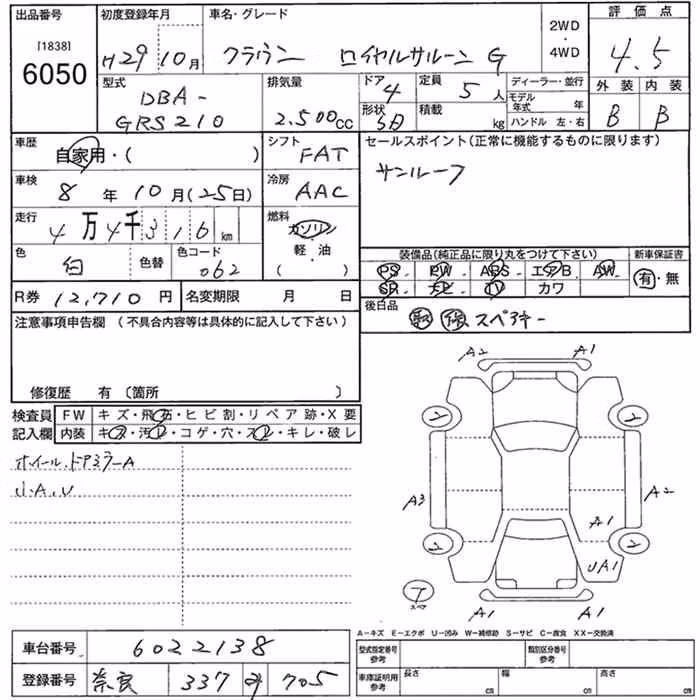 出品番号 初度登録年月 車名・グレード 2WD・4WD 評価点
[1838]
6050 H29 10月 クラウン ロイヤルサルーン G 4.5
型式 排気量 ドア 4 定員 5人 ディーラー・並行 外装 内装
DBA- 2.500cc 形状 積載 kg モデル年式 年 B B
GRS210 ハンドル 左・右
車歴 シフト セールスポイント(正常に機能するものに限ります)
自家用・( ) FAT サンルーフ
車検 8年10月(25日) 冷房 AAC
走行 4万4千316km 燃料 ガソリン・軽・油( )
色 白 色替 色コード 062
装備品(純正品に限り丸をつけて下さい) 新車保証書
PS. PW ABS エアB AW 有・無
SR ナビ TV カワ
R券 12,710円 名変期限 月 日 後日品 取 保 スペアキー
注意事項申告欄(不具合内容等は具体的に記入して下さい)
修復歴 有(箇所 )
検査員記入欄 FW キズ・飛石・ヒビ割・リペア跡・X要
内装 キズ・汚レ・コゲ・穴・スレ・キレ・破レ
ホイール.ドアミラーA
小A.U
A2 A1
2 2
A3 A2
A1
2 2
UA1
T
スペア
A1 A1
A-キズ E-エクボ U-凹み W-補修跡 S-サビ C-腐食 XX-交換済
車台番号 6022138 型式指定番号 参考 類別区分番号 参考
登録番号 奈良 337 705 車庫証明用 参考 長さ cm 幅 cm 高さ cm